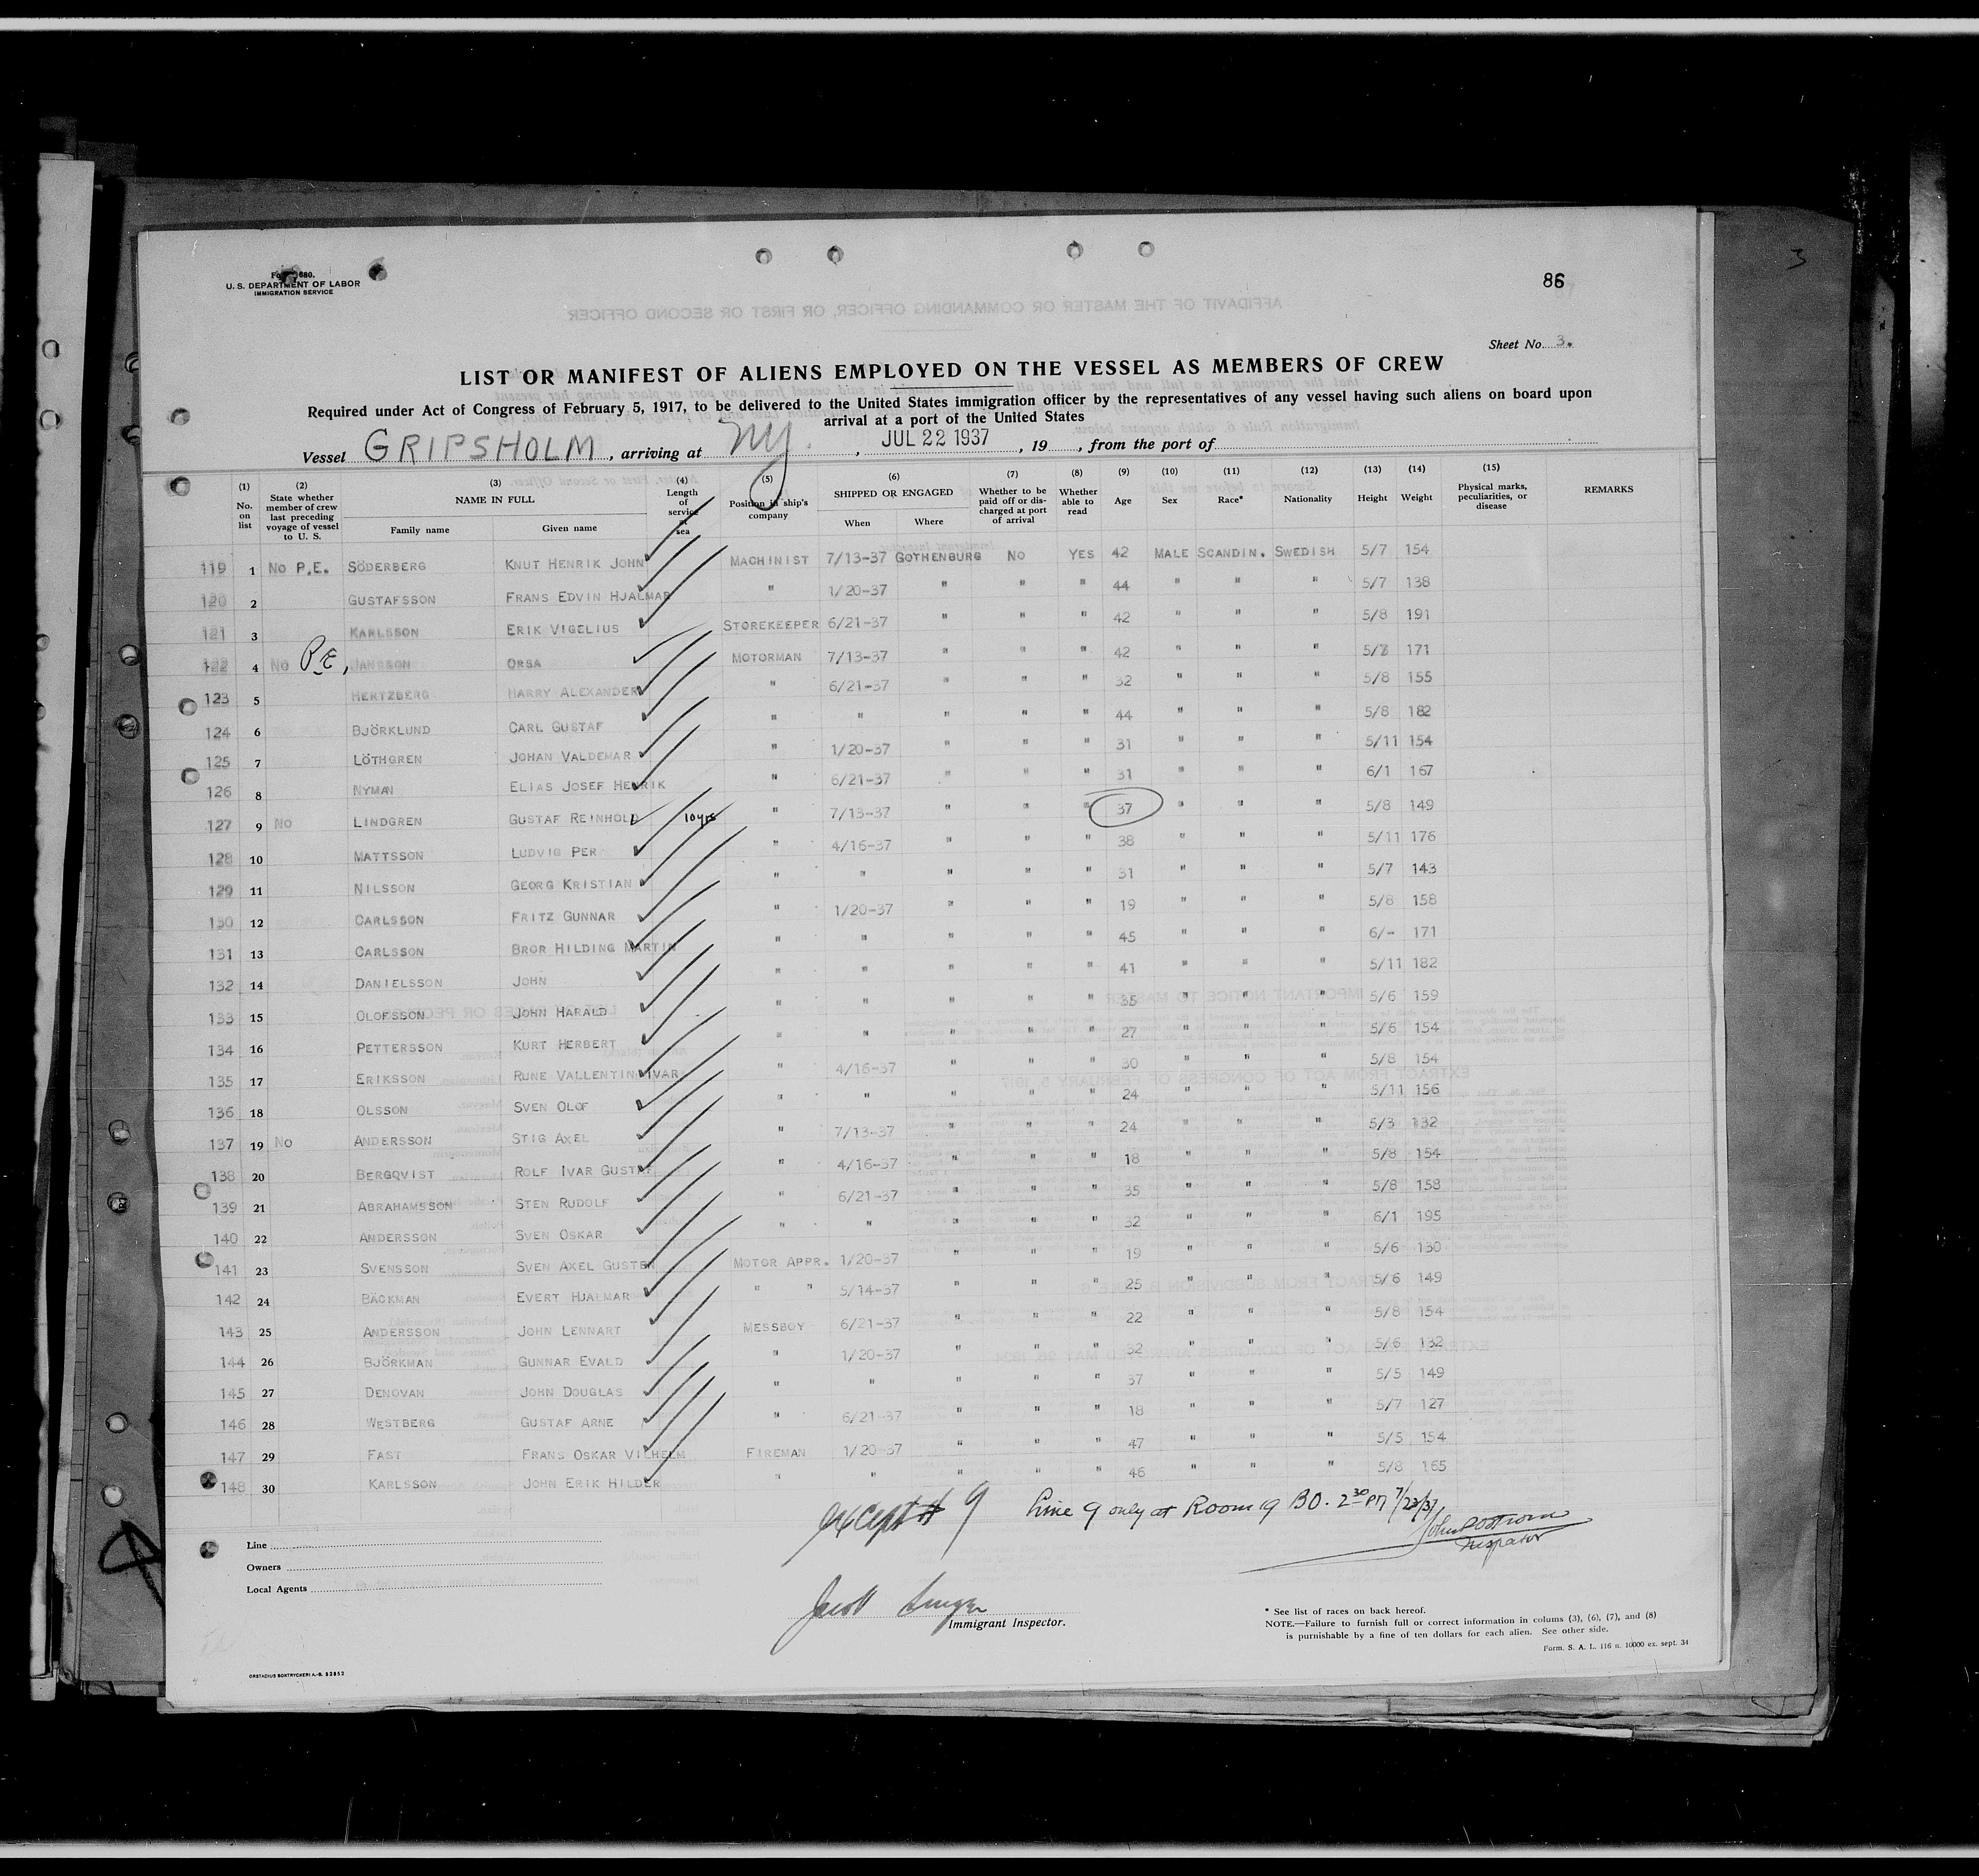 Form 680.
U. S. DEPARTMENT OF LABOR
IMMIGRATION SERVICE
86
3
Sheet No. 3.
LIST OR MANIFEST OF ALIENS EMPLOYED ON THE VESSEL AS MEMBERS OF CREW
Required under Act of Congress of February 5, 1917, to be delivered to the United States immigration officer by the representatives of any vessel having such aliens on board upon
arrival at a port of the United States
Vessel GRIPSHOLM, arriving at NY., JUL 22 1937, 19 , from the port of
(1) No. on list (2) State whether member of crew last preceding voyage of vessel to U. S. (3) NAME IN FULL Family name Given name (4) Length of service at sea (5) Position in ship's company (6) SHIPPED OR ENGAGED When Where (7) Whether to be paid off or discharged at port of arrival (8) Whether able to read (9) Age (10) Sex (11) Race* (12) Nationality (13) Height (14) Weight (15) Physical marks, peculiarities, or disease REMARKS
119 1 No P.E. SÖDERBERG KNUT HENRIK JOHN MACHINIST 7/13-37 GOTHENBURG NO YES 42 MALE SCANDIN. SWEDISH 5/7 154
120 2 GUSTAFSSON FRANS EDVIN HJALMAR " 1/20-37 " " " 44 " " " 5/7 138
121 3 KARLSSON ERIK VIGELIUS STOREKEEPER 6/21-37 " " " 42 " " " 5/8 191
122 4 No P.E. JANSSON ORSA MOTORMAN 7/13-37 " " " 42 " " " 5/7 171
123 5 HERTZBERG HARRY ALEXANDER " 6/21-37 " " " 32 " " " 5/8 155
124 6 BJÖRKLUND CARL GUSTAF " " " " " 44 " " " 5/8 182
125 7 LÖTHGREN JOHAN VALDEMAR " 1/20-37 " " " 31 " " " 5/11 154
126 8 NYMAN ELIAS JOSEF HENRIK " 6/21-37 " " " 31 " " " 6/1 167
127 9 No LINDGREN GUSTAF REINHOLD 10yrs " 7/13-37 " " " 37 " " " 5/8 149
128 10 MATTSSON LUDVIG PER " 4/16-37 " " " 38 " " " 5/11 176
129 11 NILSSON GEORG KRISTIAN " " " " " 31 " " " 5/7 143
130 12 CARLSSON FRITZ GUNNAR " 1/20-37 " " " 19 " " " 5/8 158
131 13 CARLSSON BROR HILDING MARTIN " " " " " 45 " " " 6/- 171
132 14 DANIELSSON JOHN " " " " " 41 " " " 5/11 182
133 15 OLOFSSON JOHN HARALD " " " " " 35 " " " 5/6 159
134 16 PETTERSSON KURT HERBERT " " " " " 27 " " " 5/6 154
135 17 ERIKSSON RUNE VALLENTIN IVAR " 4/16-37 " " " 30 " " " 5/8 154
136 18 OLSSON SVEN OLOF " " " " " 24 " " " 5/11 156
137 19 No ANDERSSON STIG AXEL " 7/13-37 " " " 24 " " " 5/3 132
138 20 BERGQVIST ROLF IVAR GUSTAF " 4/16-37 " " " 18 " " " 5/8 154
139 21 ABRAHAMSSON STEN RUDOLF " 6/21-37 " " " 35 " " " 5/8 158
140 22 ANDERSSON SVEN OSKAR " " " " " 32 " " " 6/1 195
141 23 SVENSSON SVEN AXEL GUSTEN MOTOR APPR. 1/20-37 " " " 19 " " " 5/6 130
142 24 BÄCKMAN EVERT HJALMAR " " 5/14-37 " " " 25 " " " 5/6 149
143 25 ANDERSSON JOHN LENNART MESSBOY 6/21-37 " " " 22 " " " 5/8 154
144 26 BJÖRKMAN GUNNAR EVALD " 1/20-37 " " " 32 " " " 5/6 132
145 27 DENOVAN JOHN DOUGLAS " " " " " 37 " " " 5/5 149
146 28 WESTBERG GUSTAF ARNE " 6/21-37 " " " 18 " " " 5/7 127
147 29 FAST FRANS OSKAR VILHELM FIREMAN 1/20-37 " " " 47 " " " 5/5 154
148 30 KARLSSON JOHN ERIK HILDER " " " " " 46 " " " 5/8 165
except # 9 Line 9 only at Room 19 BO. 2 30 PM 7/23/37
Inspector
Line
Owners
Local Agents
Immigrant Inspector.
* See list of races on back hereof.
NOTE.—Failure to furnish full or correct information in colums (3), (6), (7), and (8)
is punishable by a fine of ten dollars for each alien. See other side.
Form. S. A. L. 116 n. 10000 ex. sept. 34
ORSTADIUS BOKTRYCKERI A.-B. 52852